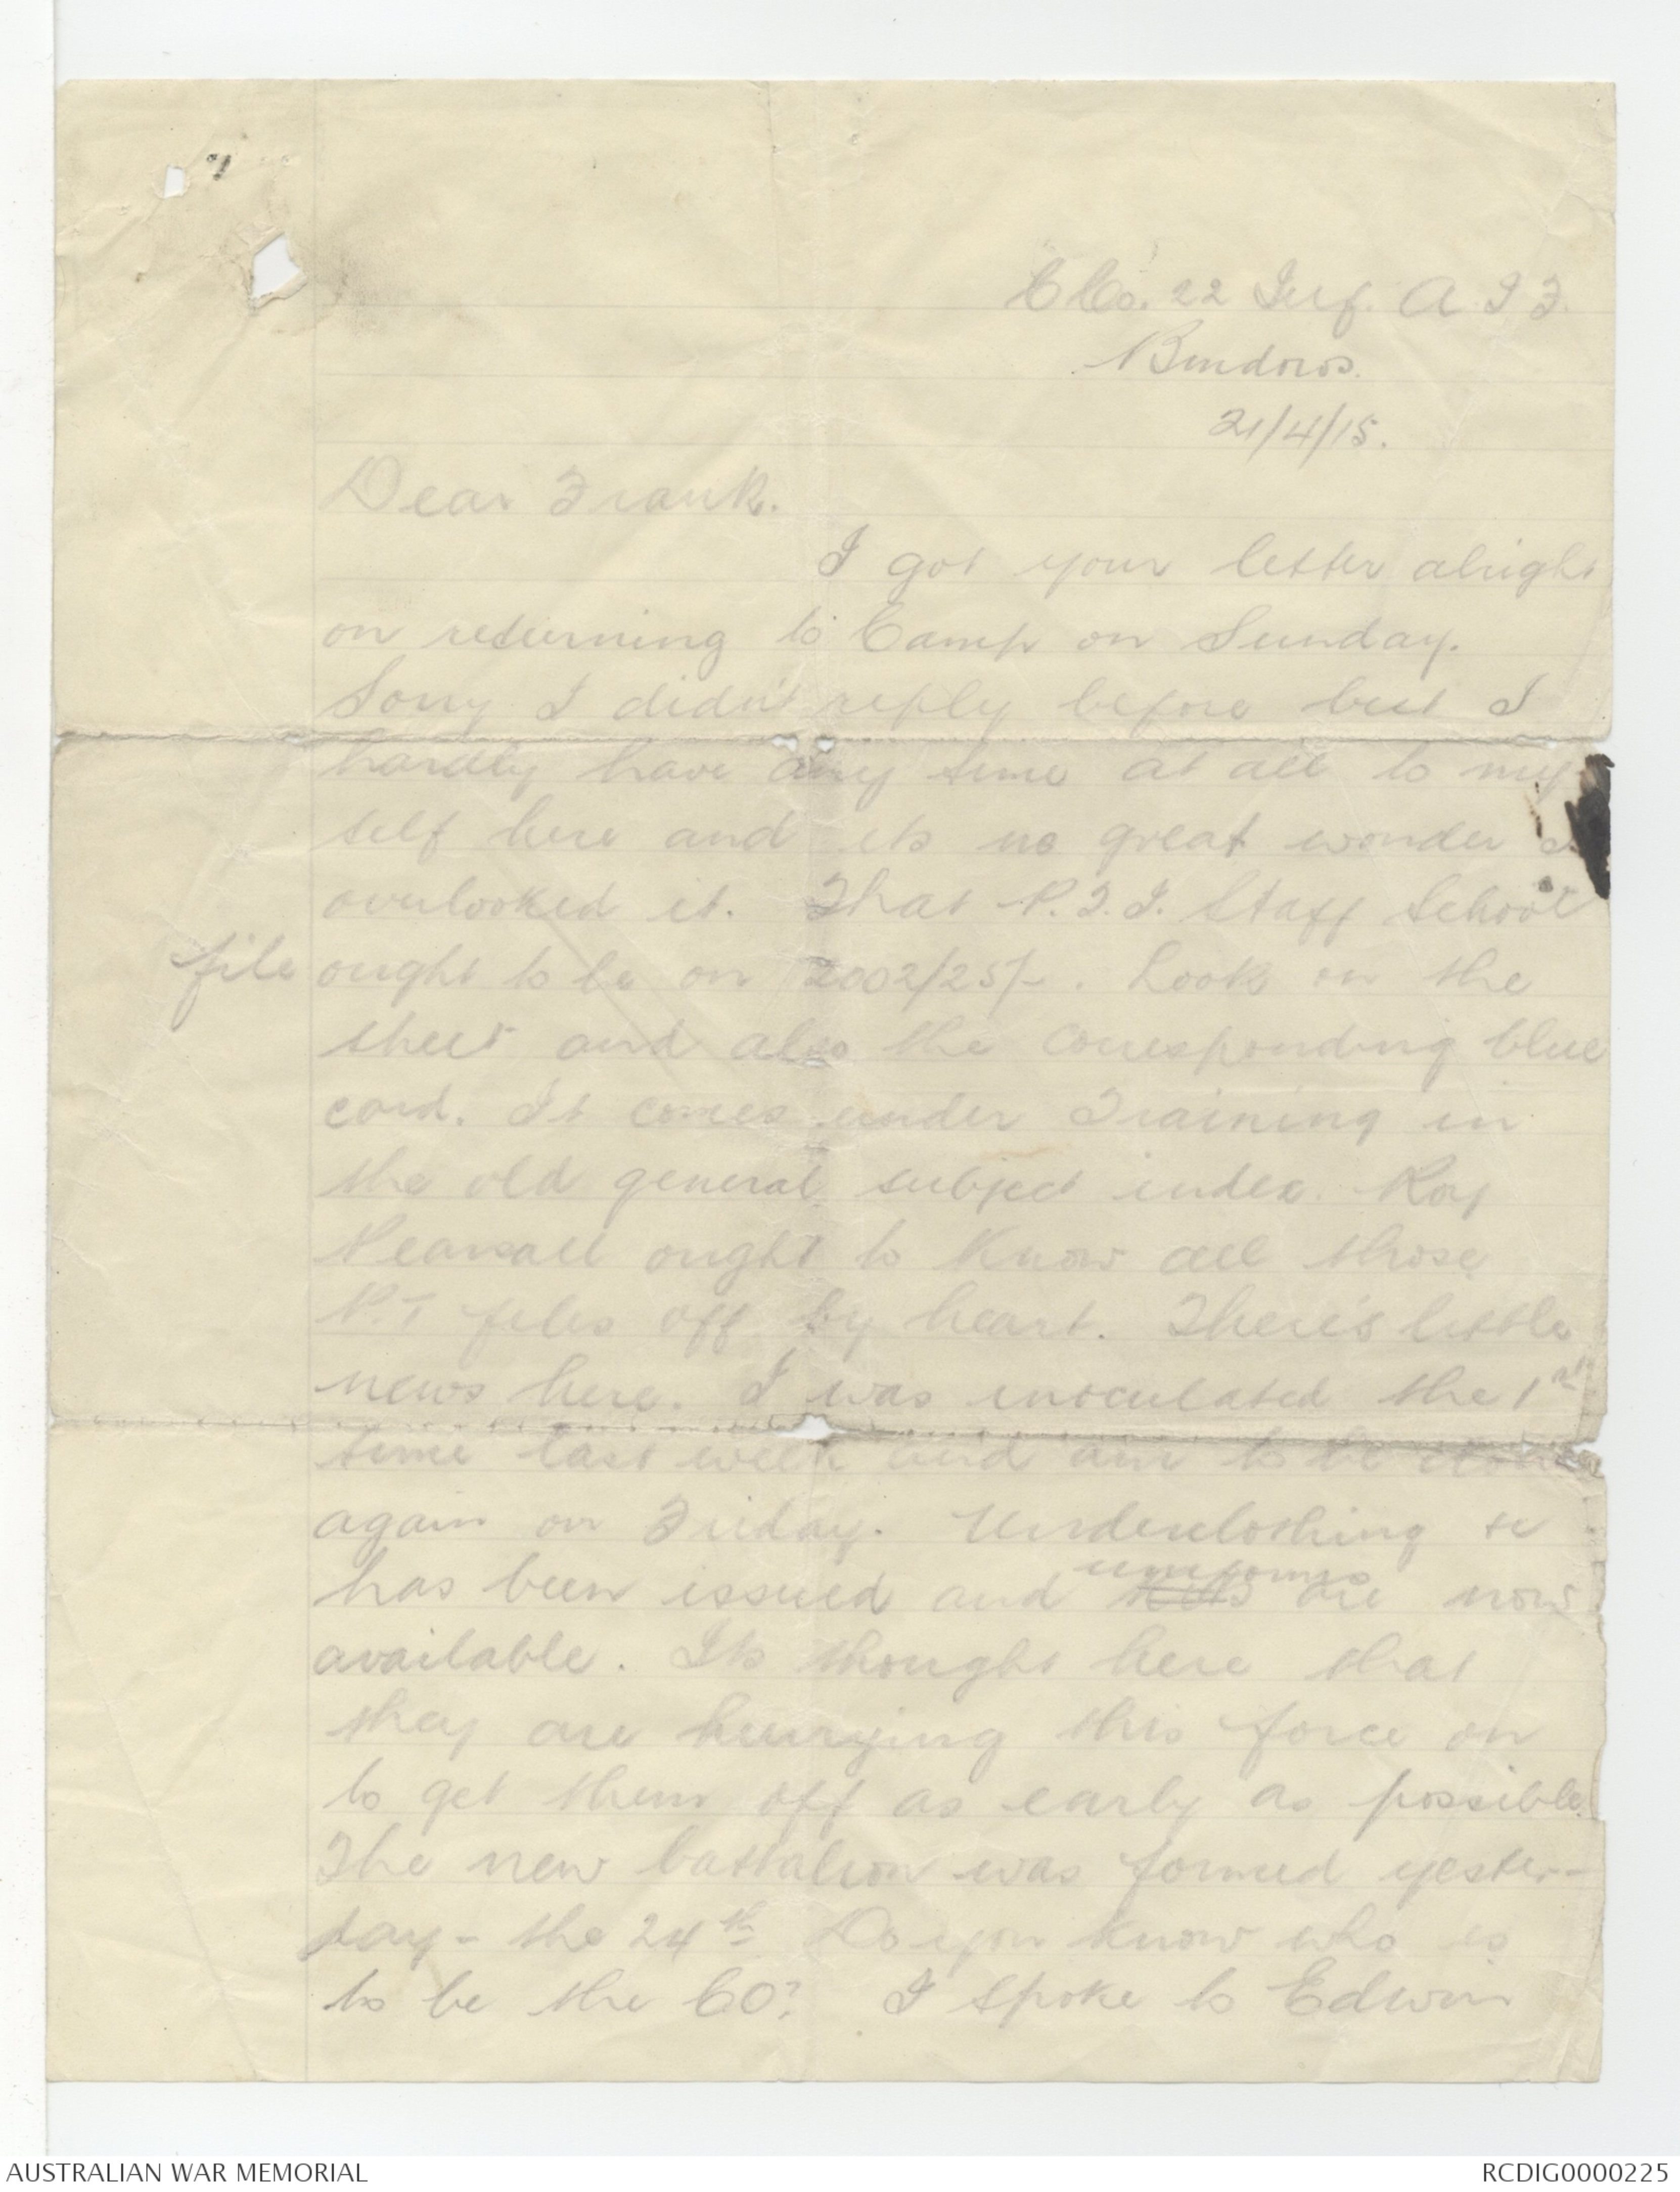 C Co. 22 Inf. A I F.
Bmdows.
21/4/15.
Dear Frank.
I got your letter alright
on returning to Camp on Sunday.
Sorry I didn't reply before but I
hardly have any time at all to my
self here and its no great wonder I
overlooked it. That P.T.I. Staff School
file ought to be on 2002/25/-. Look on the
sheet and also the corresponding blue
card. It comes under Training in
the old general subject index. Roy
Pearsall ought to know all those
P.T files off by heart. There's little
news here. I was inoculated the 1st
time last week and am to be done
again on Friday. Underclothing &c
has been issued and uniforms are now
available. Its thought here that
they are hurrying this force on
to get them off as early as possible.
The new battalion was formed yester-
day - the 24th Do you know who is
to be the CO? I spoke to Edwin
AUSTRALIAN WAR MEMORIAL
RCDIG0000225